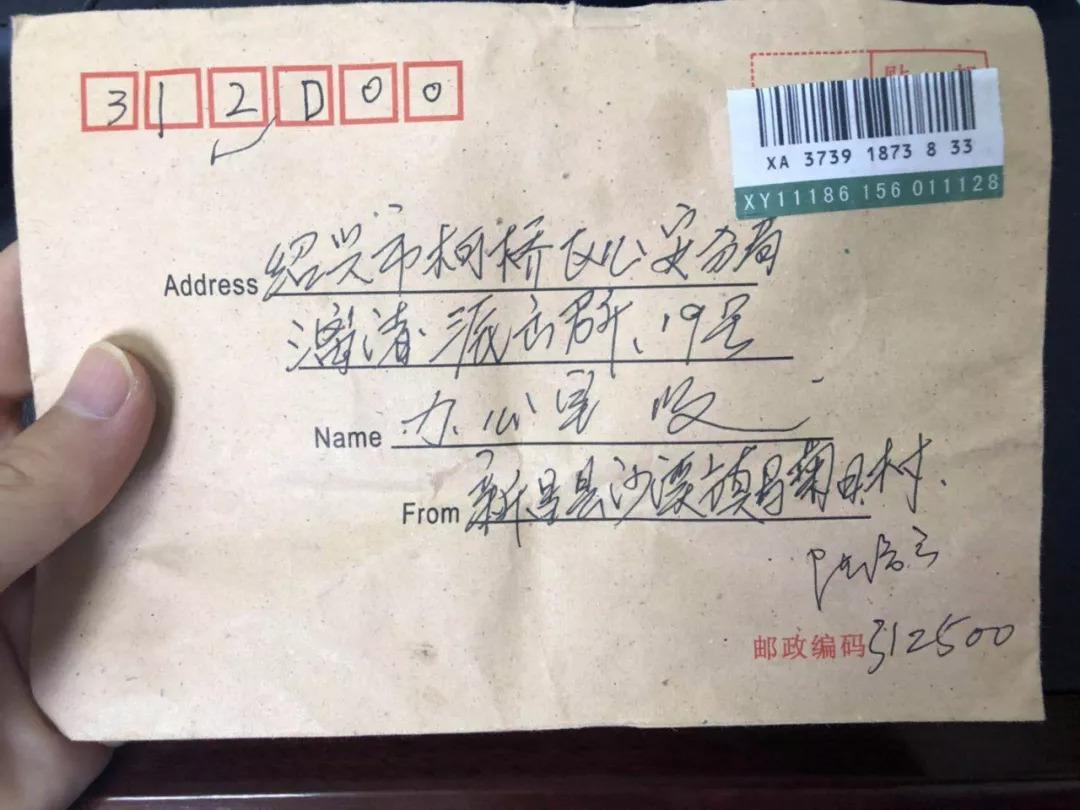 312000
XA 3739 1873 8 33
XY11186 156 011128
Address 绍兴市柯桥区公安分局
漓渚派出所、19号
Name 办公室 收
From 新昌县沙溪镇
邮政编码 312500